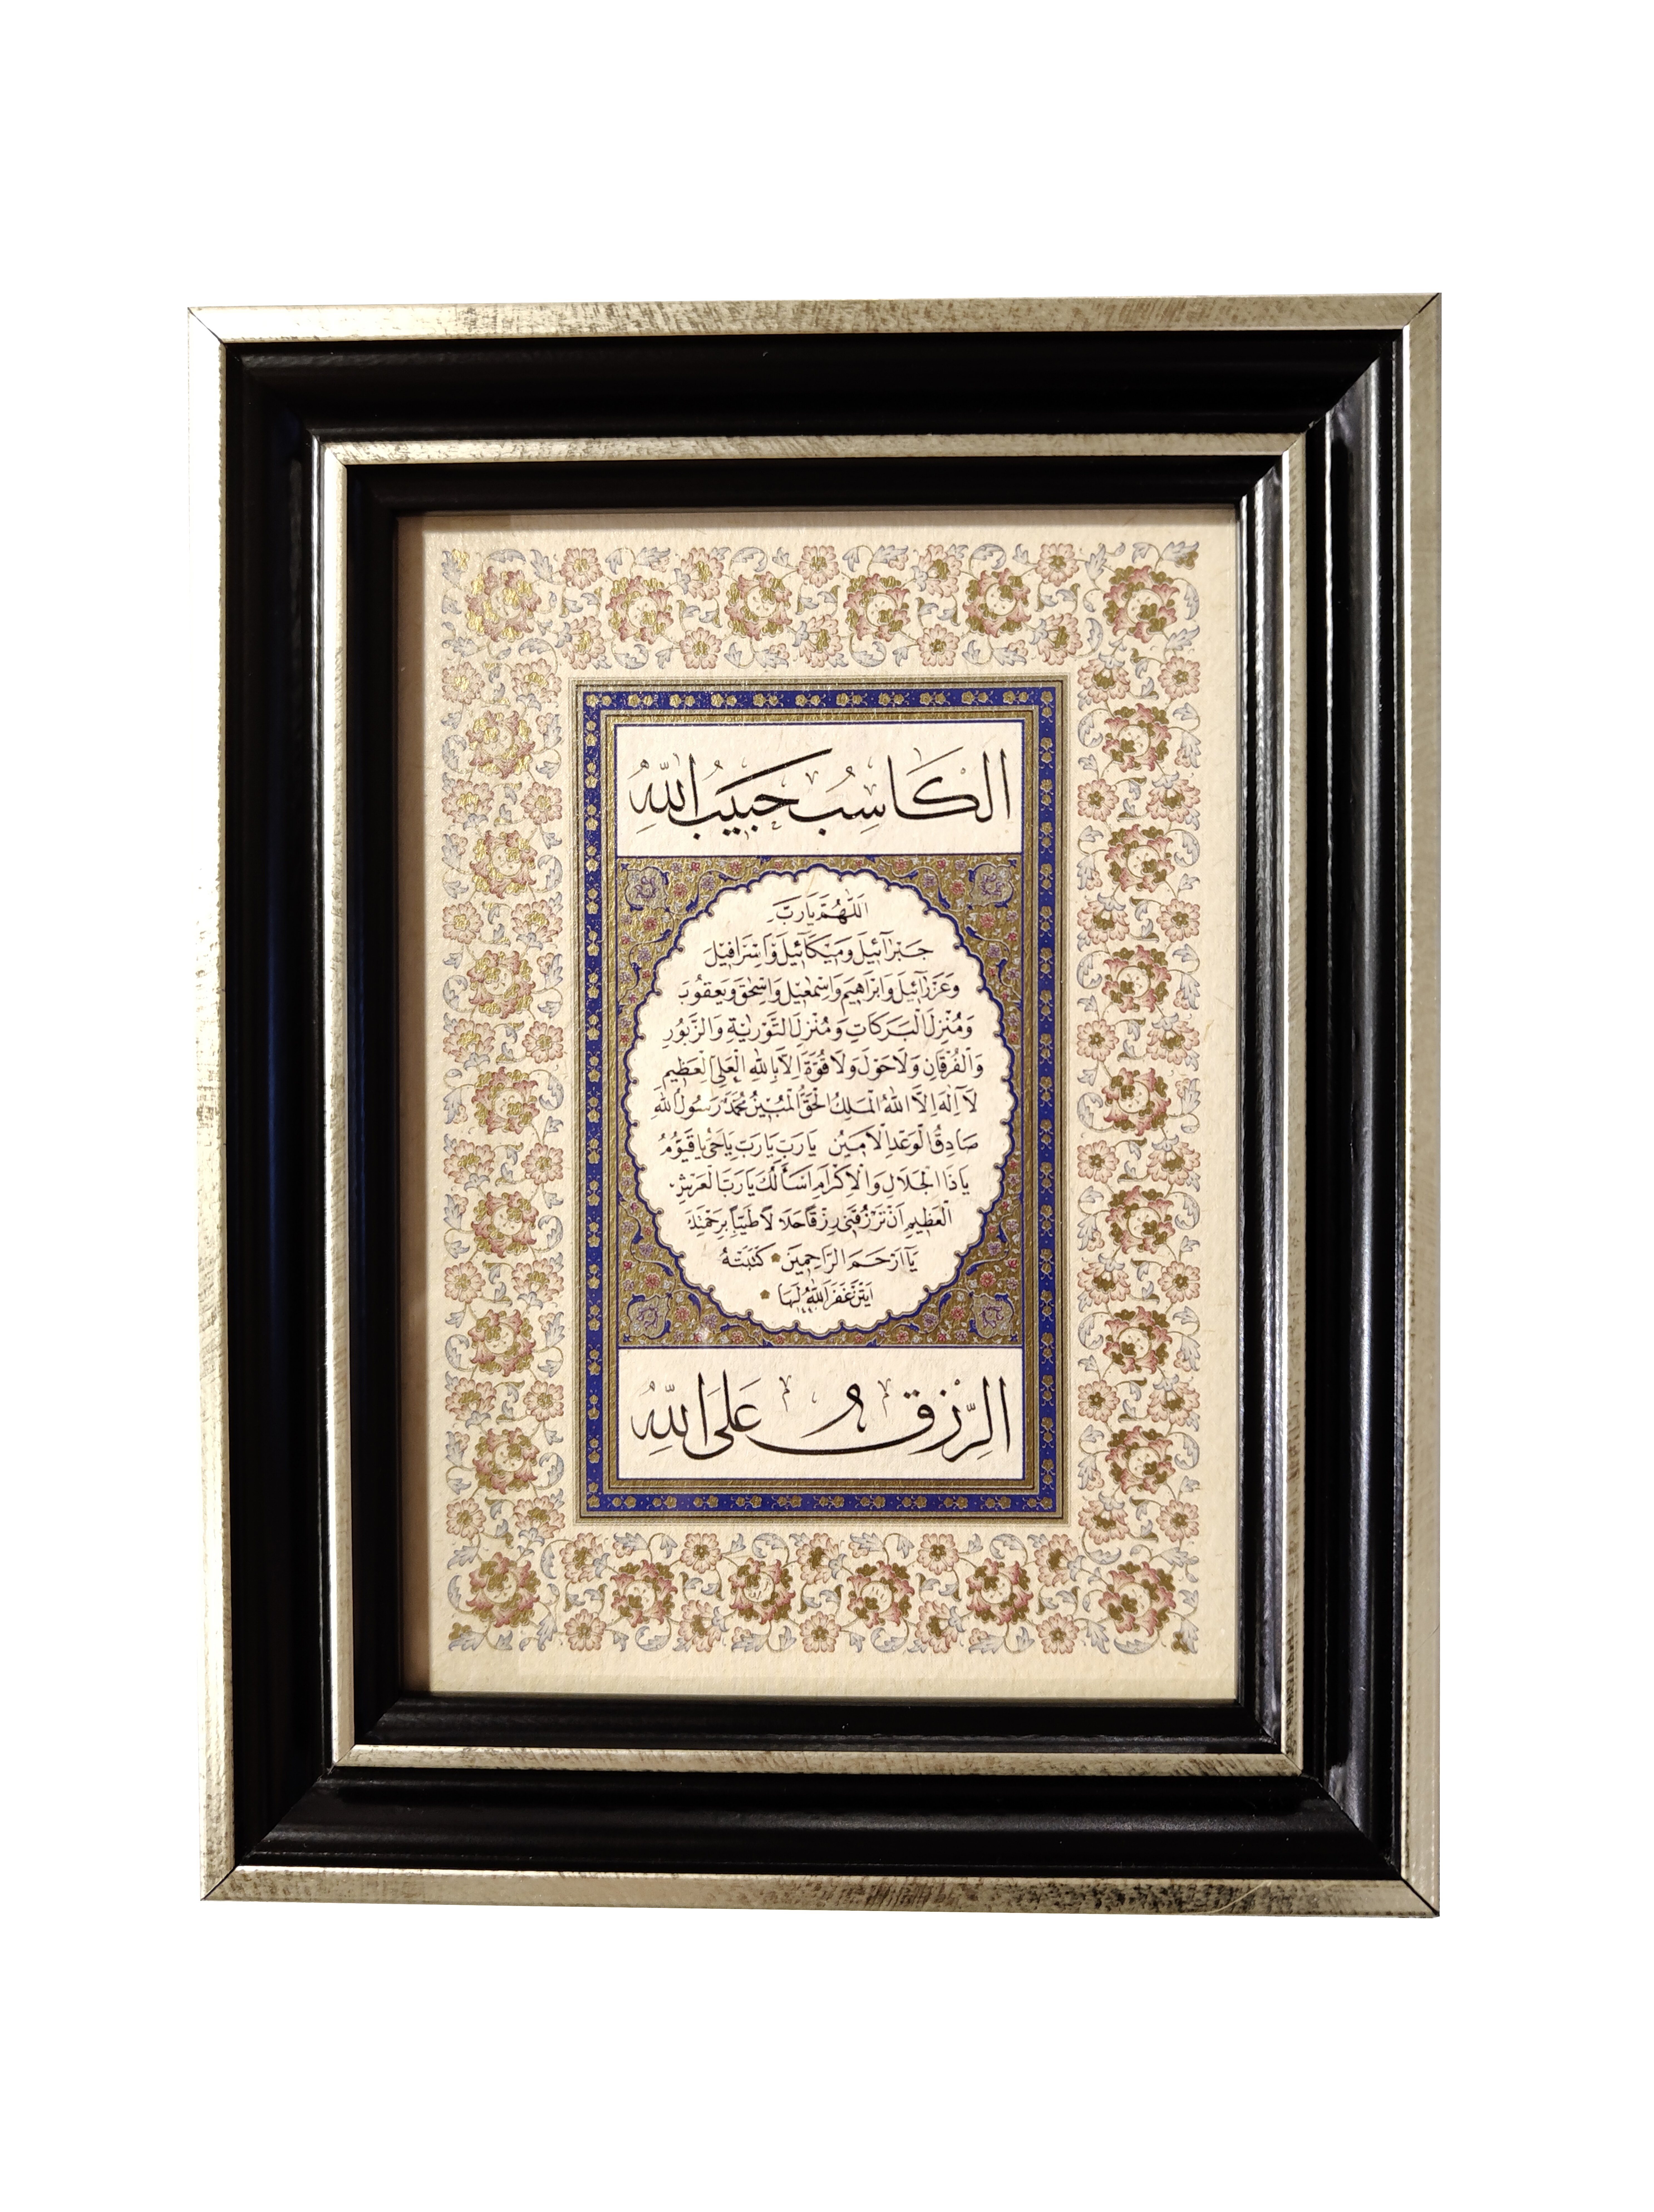 الْكَاسِبُ حَبِيبُ اللّٰهِ
اَللّٰهُمَّ يَارَبَّ
جَبْرَآئِيلَ وَمِيكَآئِيلَ وَاِسْرَافِيلَ
وَعَزْرَآئِيلَ وَاِبْرَاهِيمَ وَاِسْمٰعِيلَ وَاِسْحٰقَ وَيَعْقُوبَ
وَمُنْزِلَ الْبَرَكَاتِ وَمُنْزِلَ التَّوْرٰيةِ وَالزَّبُورِ
وَالْفُرْقَانِ وَلَا حَوْلَ وَلَا قُوَّةَ اِلَّا بِاللّٰهِ الْعَلِيِّ الْعَظِيمِ
لَآ اِلٰهَ اِلَّا اللّٰهُ الْمَلِكُ الْحَقُّ الْمُبِينُ مُحَمَّدٌ رَسُولُ اللّٰهِ
صَادِقُ الْوَعْدِ الْاَمِينُ يَارَبِّ يَارَبِّ يَاحَيُّ يَاقَيُّومُ
يَاذَا الْجَلَالِ وَالْاِكْرَامِ اَسْأَلُكَ يَارَبَّ الْعَرْشِ
الْعَظِيمِ اَنْ تَرْزُقَنِي رِزْقًا حَلَالًا طَيِّبًا بِرَحْمَتِكَ
يَآ اَرْحَمَ الرَّاحِمِينَ كَتَبَتْهُ
غَفَرَ اللّٰهُ لَهَا
الرِّزْقُ عَلَى اللّٰهِ